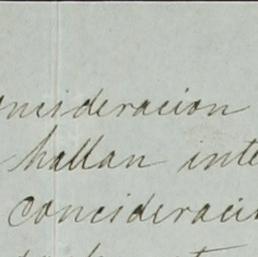 oncideracion
hallan inte
concideracio